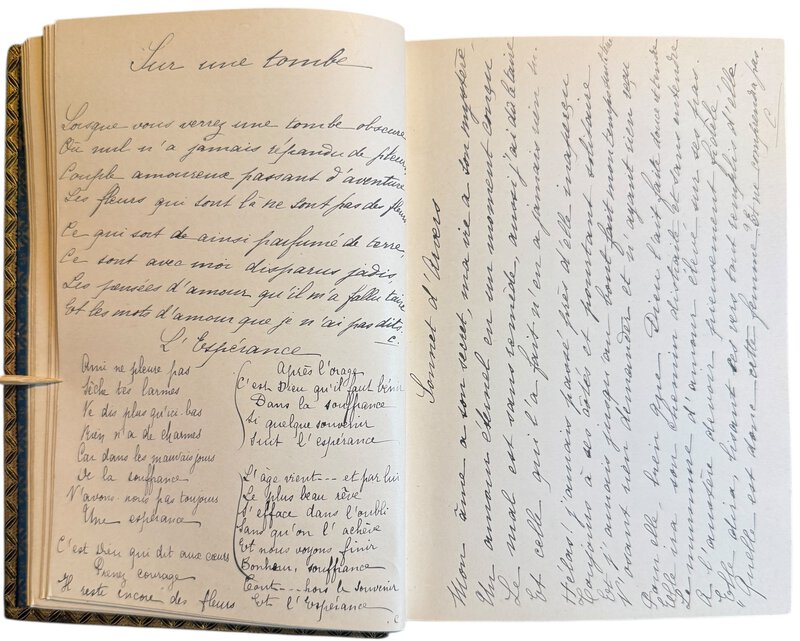 Sur une tombe
Lorsque vous verrez une tombe obscure
Où nul n'a jamais répandu de pleurs
Couple amoureux passant d'aventure
Les fleurs qui sont là ne sont pas des fleurs
Ce qui sort de ainsi parfumé de terre,
Ce sont avec moi disparus jadis
Les pensées d'amour qu'il m'a fallu taire
Et les mots d'amour que je n'ai pas dits.
C.
L'Espérance
Ami ne pleure pas
Sèche tes larmes
Ne dis plus qu'ici bas
Rien n'a de charmes
Car dans les mauvais jours
De la souffrance
N'avons-nous pas toujours
Une espérance
C'est Dieu qui dit aux cœurs
Prenez courage
Il reste encore des fleurs
Après l'orage
C'est Dieu qu'il faut bénir
Dans la souffrance
Si quelque souvenir
Suit l'espérance
L'âge vient -- et par lui
Le plus beau rêve
S'efface dans l'oubli
Sans qu'on l'achève
Et nous voyons finir
Bonheur, souffrance
Tout --- hors le souvenir
Et l'Espérance
C
Sonnet d'Arvers
Mon âme a son secret, ma vie a son mystère
Un amour éternel en un moment conçu
Le mal est sans remède aussi j'ai dû le taire
Et celle qui l'a fait n'en a jamais rien su.
Hélas j'aurais passé près d'elle inaperçu
Toujours à ses côtés et pourtant solitaire
Et j'aurais jusqu'au bout fait mon temps sur la terre
N'osant rien demander et n'ayant rien reçu
Pour elle, bien que Dieu l'ait faite bonne et tendre
Elle ira son chemin distraite et sans entendre
Le murmure d'amour élevé sur ses pas.
A l'austère devoir pieusement fidèle
Elle dira, lisant ces vers tout remplis d'elle
Quelle est donc cette femme? Et ne comprendra pas.
C.